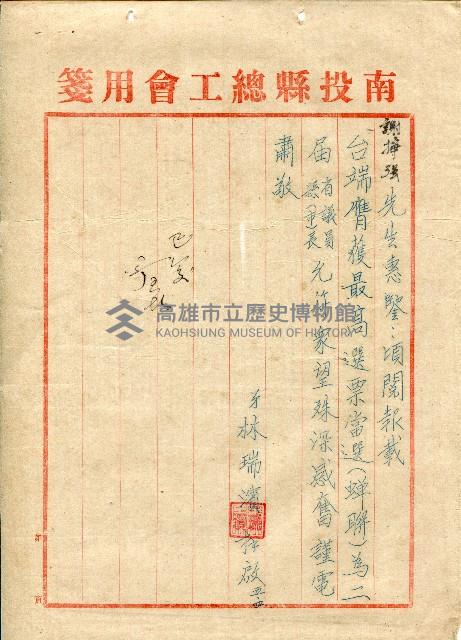 南投縣總工會用箋
謝掙强先生惠鑒:頃閱報載
台端膺獲最高選票當選(蟬聯)為二
届省議員縣軍長允符眾望殊深感奮謹電
肅敬
弟林瑞 拜啟
高雄市立歷史博物館
KAOHSIUNG MUSEUM OF HISTORY
第 頁